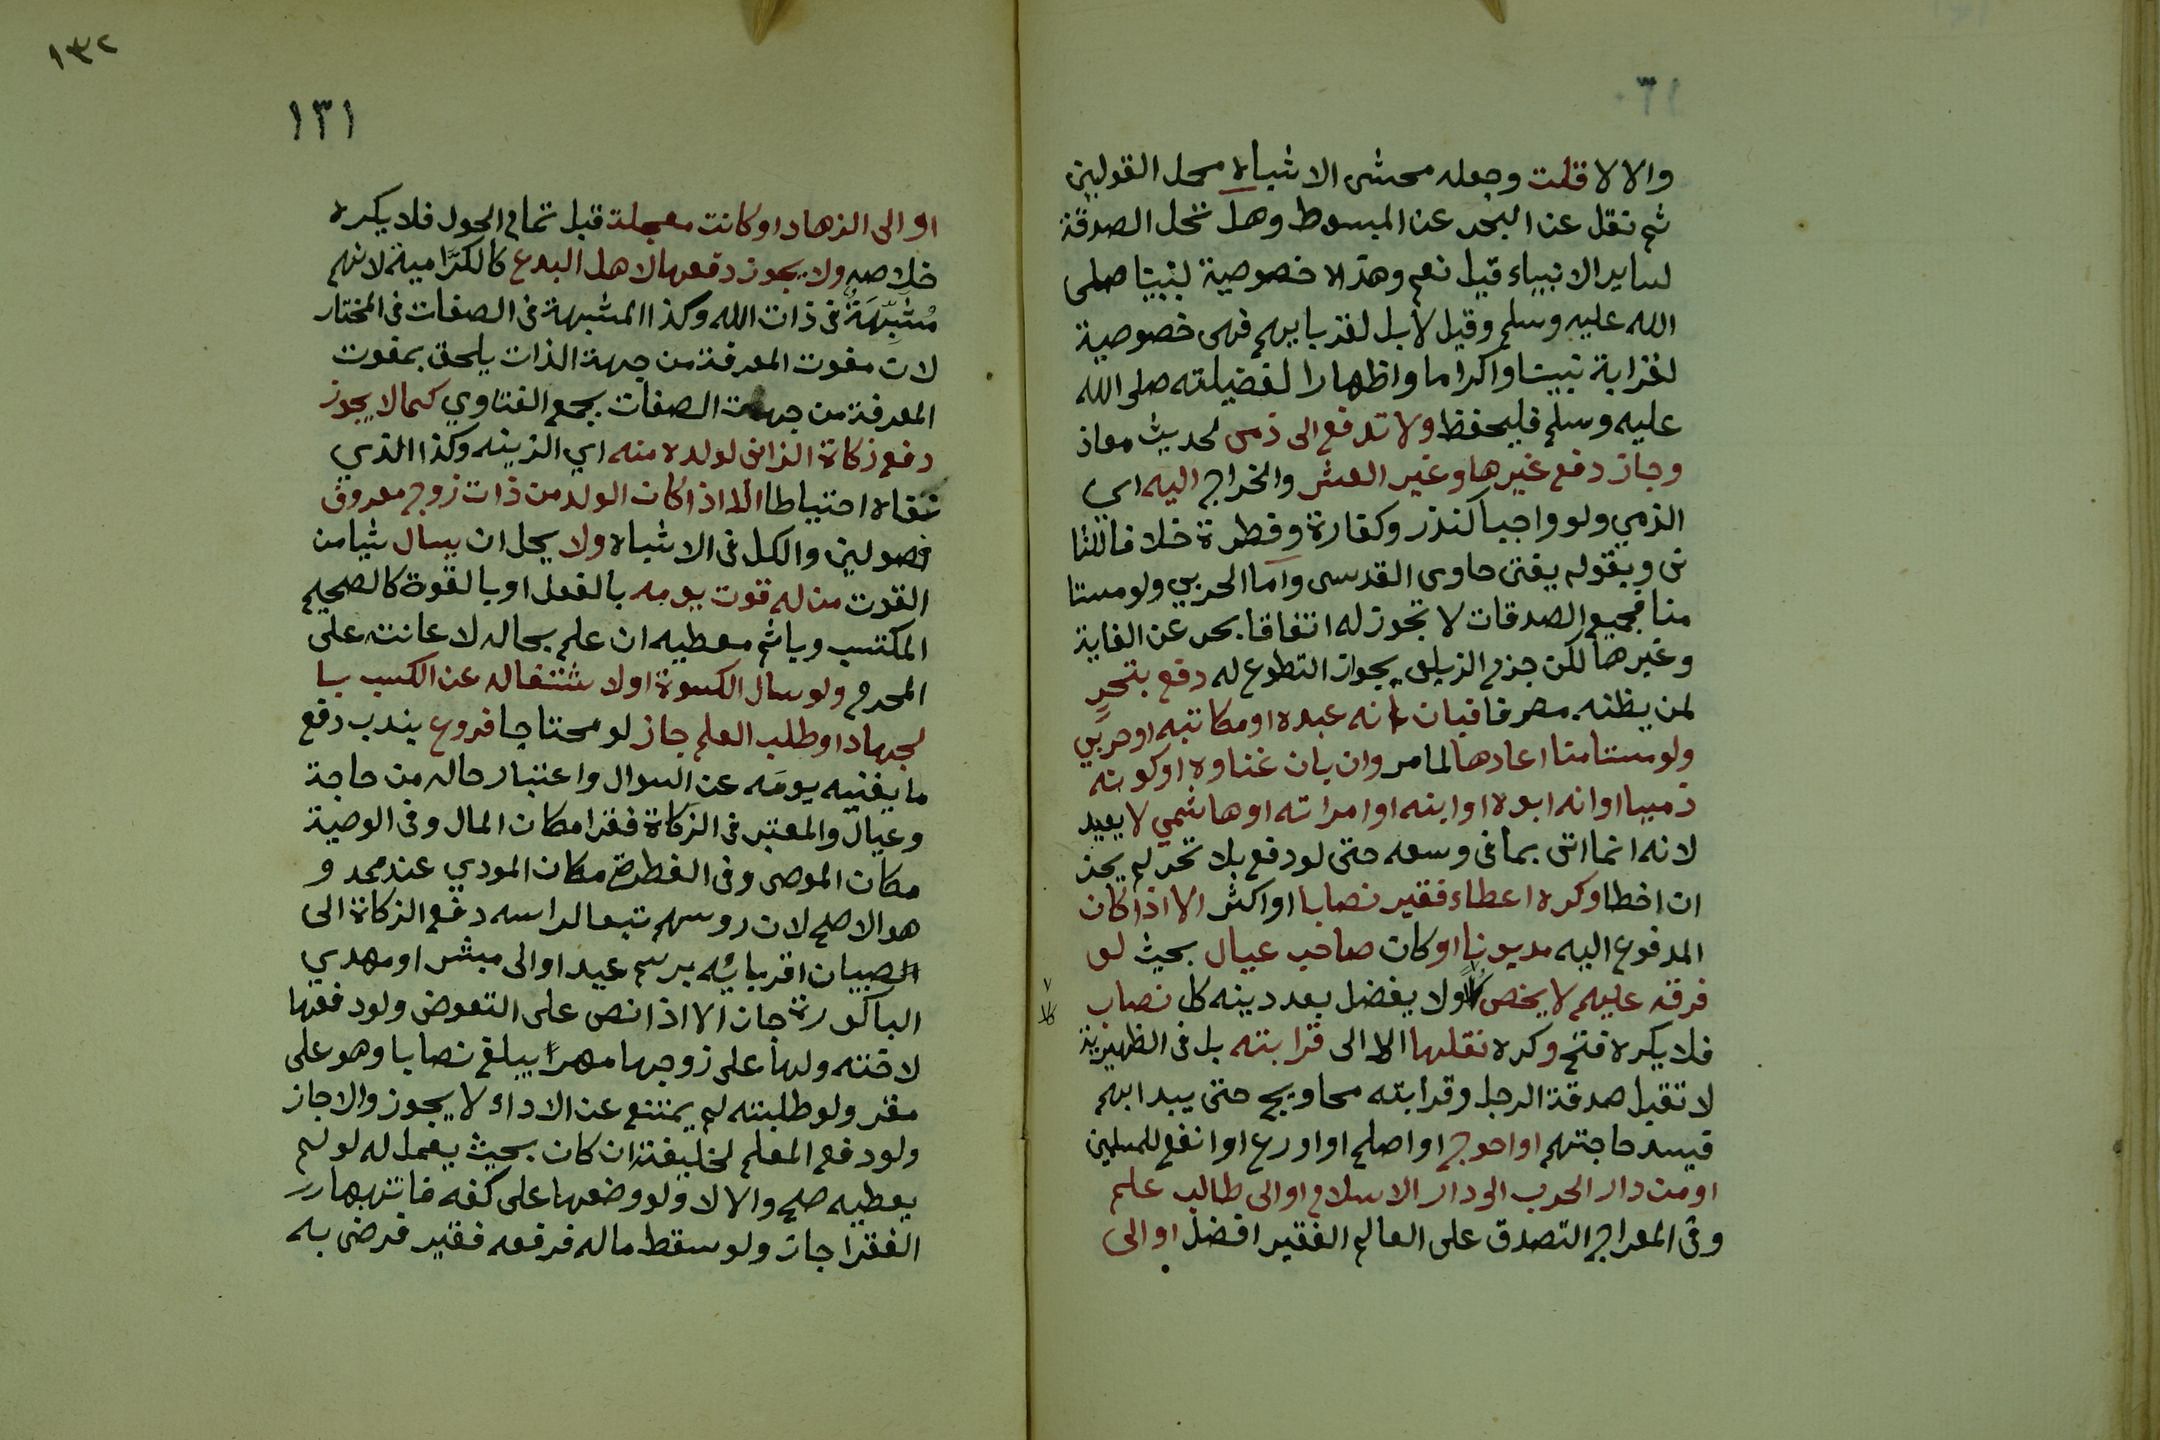 والا لا قلت وجعله محشى الاشباه محل القولين
ثم نقل عن البحر عن المبسوط وهل تحل الصدقة
لساير الانبياء قيل نعم وهذه خصوصية لنبينا صلى
الله عليه وسلم وقيل لا بل لقرباتهم فهى خصوصية
لقرابة نبينا واكراما واظهارا لفضيلته صلى الله
عليه وسلم فليحفظ ولا تدفع الى ذمى لحديث معاذ
وجاز دفع غيرها وغير العشر والخراج اليه اي
الذمي ولو واجبا كنذر وكفارة وفطرة خلافا للثا
نى وبقوله يفتى حاوى القدسى واما الحربي ولو مستا
منا فجميع الصدقات لا تجوز له اتفاقا بحر عن الغاية
وغيرها لكن جزم الزيلعى بجواز التطوع له دفع بتحر
لمن يظنه مصرفا فبان انه عبده او مكاتبه او حربي
ولو مستامنا اعادها لما مر وان بان غناوه او كونه
ذميا او انه ابوه او ابنه او امراته او هاشمي لا يعيد
لانه انما اتى بما فى وسعه حتى لو دفع بلا تحر لم يجز
ان اخطا وكره اعطاء فقير نصابا او اكثر الا اذا كان
المدفوع اليه مديونا او كان صاحب عيال بحيث لو
فرقه عليهم لا يخص كلا ولا يفضل بعد دينه كل نصاب
كلا
فلا يكره فتح وكره نقلها الا الى قرابته بل فى الظهيرية
لا تقبل صدقة الرجل وقرابته محاويج حتى يبدا بهم
فيسد حاجتهم او احوج او اصلح او اورع او انفع للمسلمين
او من دار الحرب الى دار الاسلام او الى طالب علم
وفى المعراج التصدق على العالم الفقير افضل او الى
١٣٢
١٣١
او الى الزهاد او كانت معجلة قبل تمام الحول فلا يكره
خلاصه ولا يجوز دفعها لاهل البدع كالكرامية لانهم
مشبهة فى ذات الله وكذا المشبهة فى الصفات فى المختار
لان مفوت المعرفة من جهة الذات يلحق بمفوت
المعرفة من جهة الصفات بجمع الفتاوي كما لا يجوز
دفع زكاة الزانى لولده منه اي الزينه وكذا الذي
نفاه احتياطا الا اذا كان الولد من ذات زوج معروف
فصولين والكل فى الاشباه ولا يحل ان يسال شيا من
القوت من له قوت يومه بالفعل او بالقوة كالصحيح
المكتسب وياثم معطيه ان علم بحاله لاعانته على
المحرم ولو سال الكسوة او لاشتغاله عن الكسب با
لجهاد او طلب العلم جاز لو محتاجا فروع يندب دفع
ما يغنيه يومه عن السوال واعتبار حاله من حاجة
وعيال والمعتبر فى الزكاة فقرا مكان المال وفى الوصية
مكان الموصى وفى الفطرة مكان المودي عند محمد و
هو الاصح لان روسهم تبعا لراسه دفع الزكاة الى
الصبيان اقربائه برسم عيد او الى مبشر او مهدي
الباكورة جاز الا اذا نص على التعوض ولو دفعها
لاخته ولها على زوجها مهرا يبلغ نصابا وهو على
مقر ولو طلبته لم يمتنع عن الاداء لا يجوز والا جاز
ولو دفع المعلم لخليفته ان كان بحيث يعمل له لو لم
يعطيه صح والا لا ولو وضعها على كفه فانتهبها
الفقرا جاز ولو سقط ماله فرفعه فقير فرضى به